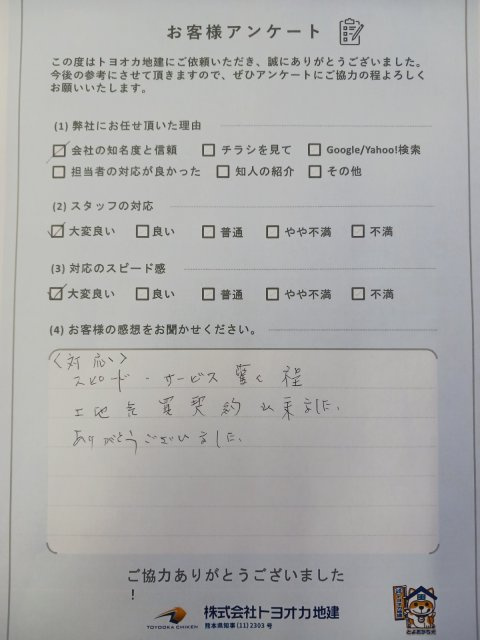 お客様アンケート
この度はトヨオカ地建にご依頼いただき、誠にありがとうございました。
今後の参考にさせて頂きますので、ぜひアンケートにご協力の程よろしく
お願いいたします。
(1) 弊社にお任せ頂いた理由
会社の知名度と信頼 チラシを見て Google/Yahoo!検索
担当者の対応が良かった 知人の紹介 その他
(2) スタッフの対応
大変良い 良い 普通 やや不満 不満
(3) 対応のスピード感
大変良い 良い 普通 やや不満 不満
(4) お客様の感想をお聞かせください。
〈対応〉
スピード・サービス 驚く程
土地売買契約出来ました。
ありがとうございました。
ご協力ありがとうございました
!
TOYOOKA CHIKEN
株式会社トヨオカ地建
熊本県知事(11)2303 号